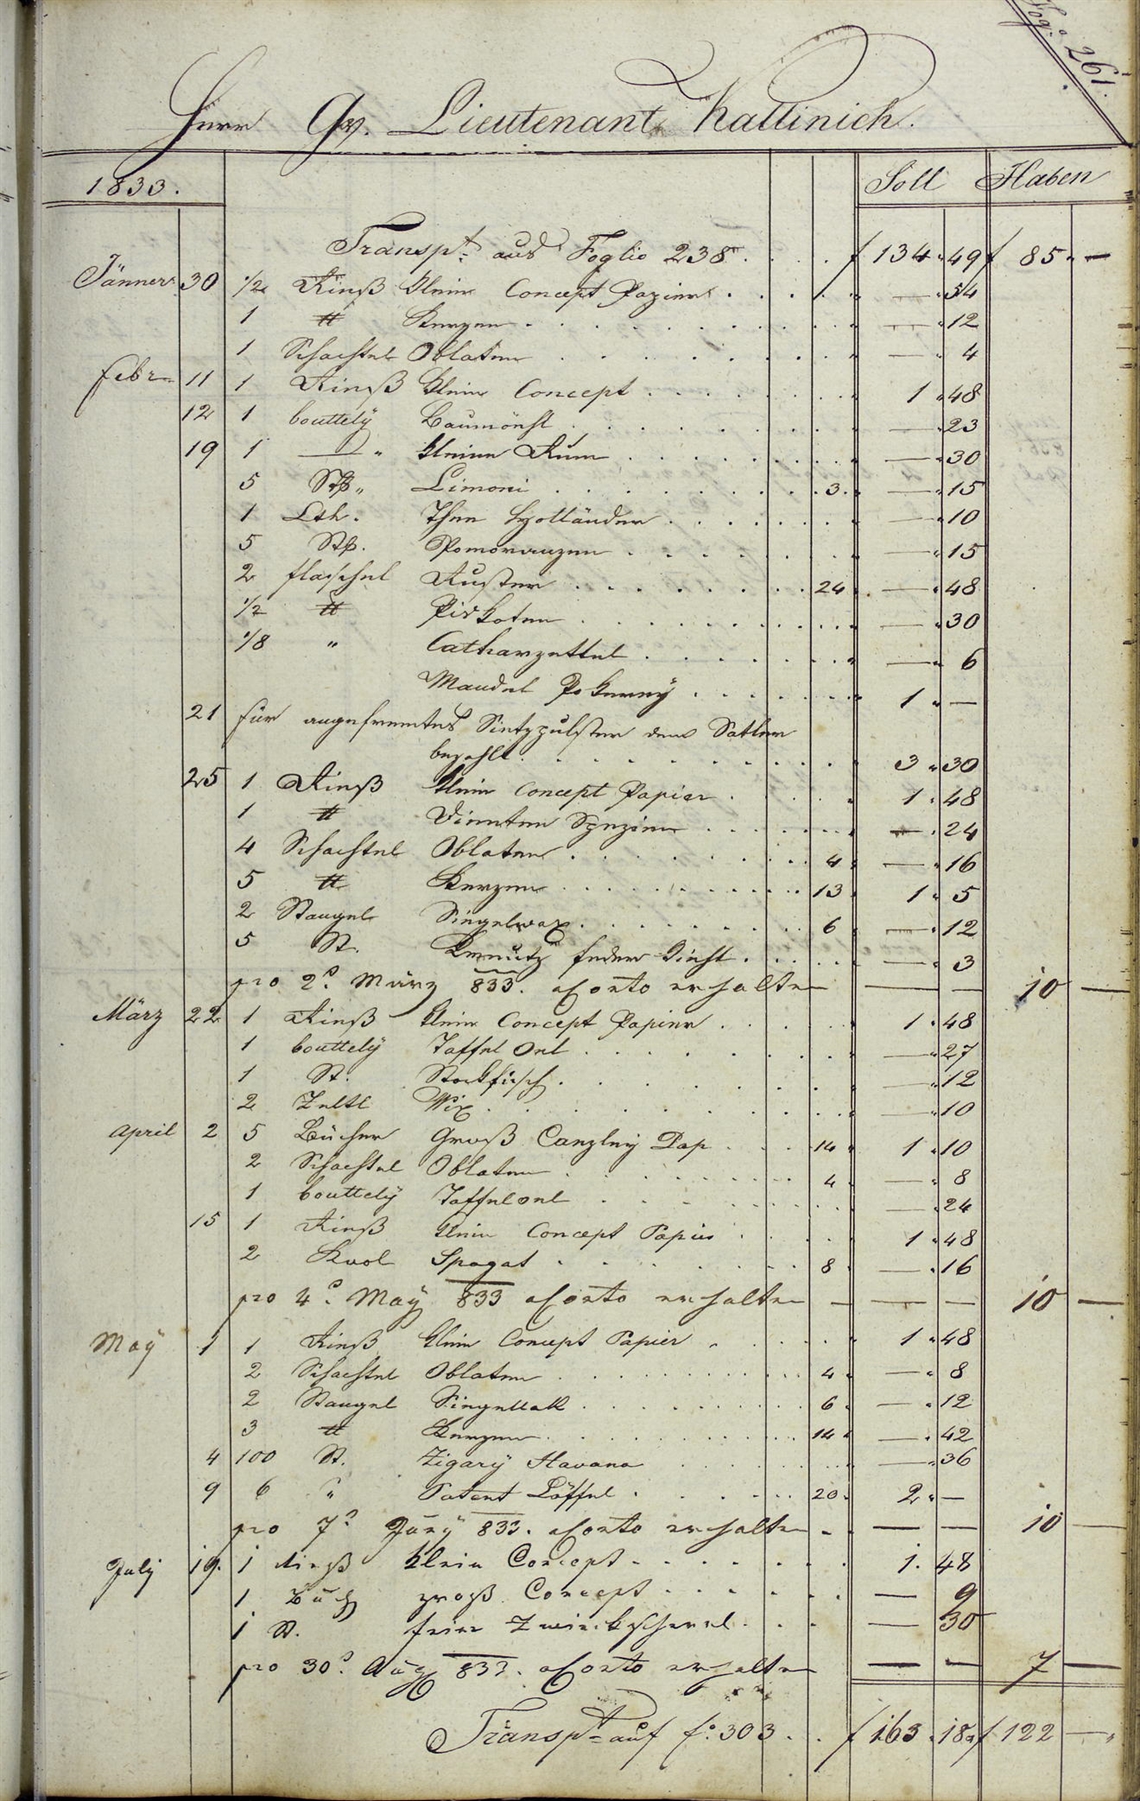 Fog: 261.
Herr Gr. Lieutenant Kallinich.
1833. Soll Haben
Transpt. aus Foglio 238 f 134 49 f 85 —
Jänner 30 1/2 Rieß klein Concept Papier — 54
1 ℔ Kerzen — 12
1 Schachtel Oblaten — 4
Febr 11 1 Rieß klein Concept 1 48
12 1 bouttely Baumöhl — 23
19 1 — " kleine Rum — 30
5 Stk " Limoni 3 — 15
1 Lth. Thee Holländer — 10
5 Stk. Pomoranzen — 15
2 flaschel Ruster 24 — 48
1/2 ℔ Piskoten — 30
1/8 " Catharzettel — 6
Mandel 1 —
21 für angefremtes Sietzpulster dem Sattler
bezahlt 3 30
25 1 Rieß klein Concept Papier 1 48
1 ℔ Dinten Spezies — 24
4 Schachtel Oblaten 4 — 16
5 ℔ Kerzen 13 1 5
2 Stangel Siegelwax 6 — 12
5 St. feder — 3
pro 2t. März 833. a Conto erhalten — — 10 —
März 22 1 Rieß klein Concept Papier 1 48
1 bouttely Taffel Oel — 27
1 St. Stockfisch — 12
2 Zeltl Wix — 10
April 2 5 Bücher Groß Canzley Pap 14 1 10
2 Schachtel Oblaten 4 — 8
1 bouttely Taffeloel — 24
15 1 Rieß klein Concept Papier 1 48
2 Spagat 8 — 16
pro 4t. May 833 a Conto erhalten — — — 10 —
May 1 1 Rieß klein Concept Papier 1 48
2 Schachtel Oblaten 4 — 8
2 Stangel Siegellak 6 — 12
3 ℔ Kerzen 14 — 42
4 100 St. Zigary Havana — 36
9 6 " Patent Löffel 20 2 —
pro 7t. Juny 833. a Conto erhalten — — — 10 —
July 19. 1 Rieß klein Concept 1. 48
1 Buch groß Concept — 9
1 St. — 30
pro 30t. Aug 833. a Conto erhalten — — 7 —
Transpt auf f: 303 f 163 18 f 122 —